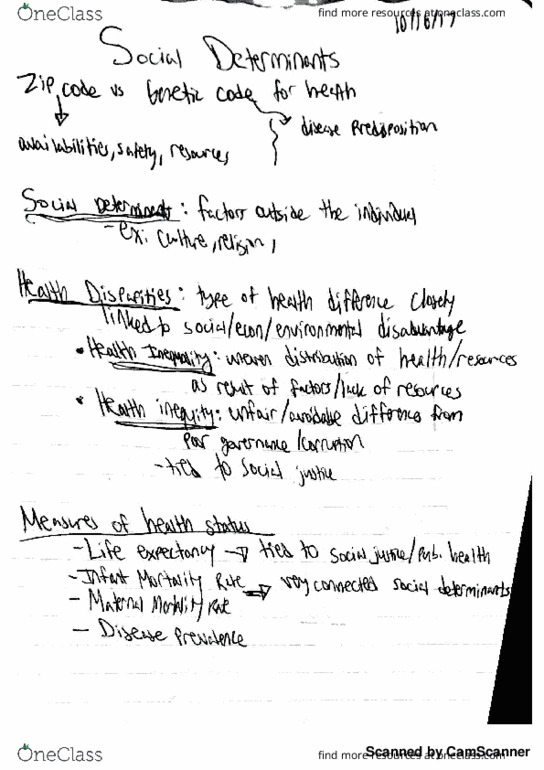 OneClass
find more resources at oneclass.com
10/16/17
Social Determinants
Zip code vs Genetic code for health
disease Predisposition
availabilities, safety, resources
Social Determinants: factors outside the individual
- ex. culture, religion,
Health Disparities: type of health difference closely
linked to social/econ/environmental disadvantage
• Health Inequality: uneven distribution of health/resources
as result of factors/lack of resources
• Health inequity: unfair/avoidable difference from
poor governance/corruption
- tied to social justice
Measures of health status
- Life expectancy → tied to social justice/Pub. health
- Infant Mortality Rate → very connected social determinants
- Maternal Mortality Rate
- Disease Prevalence
OneClass
find more resources at oneclass.com
Scanned by CamScanner